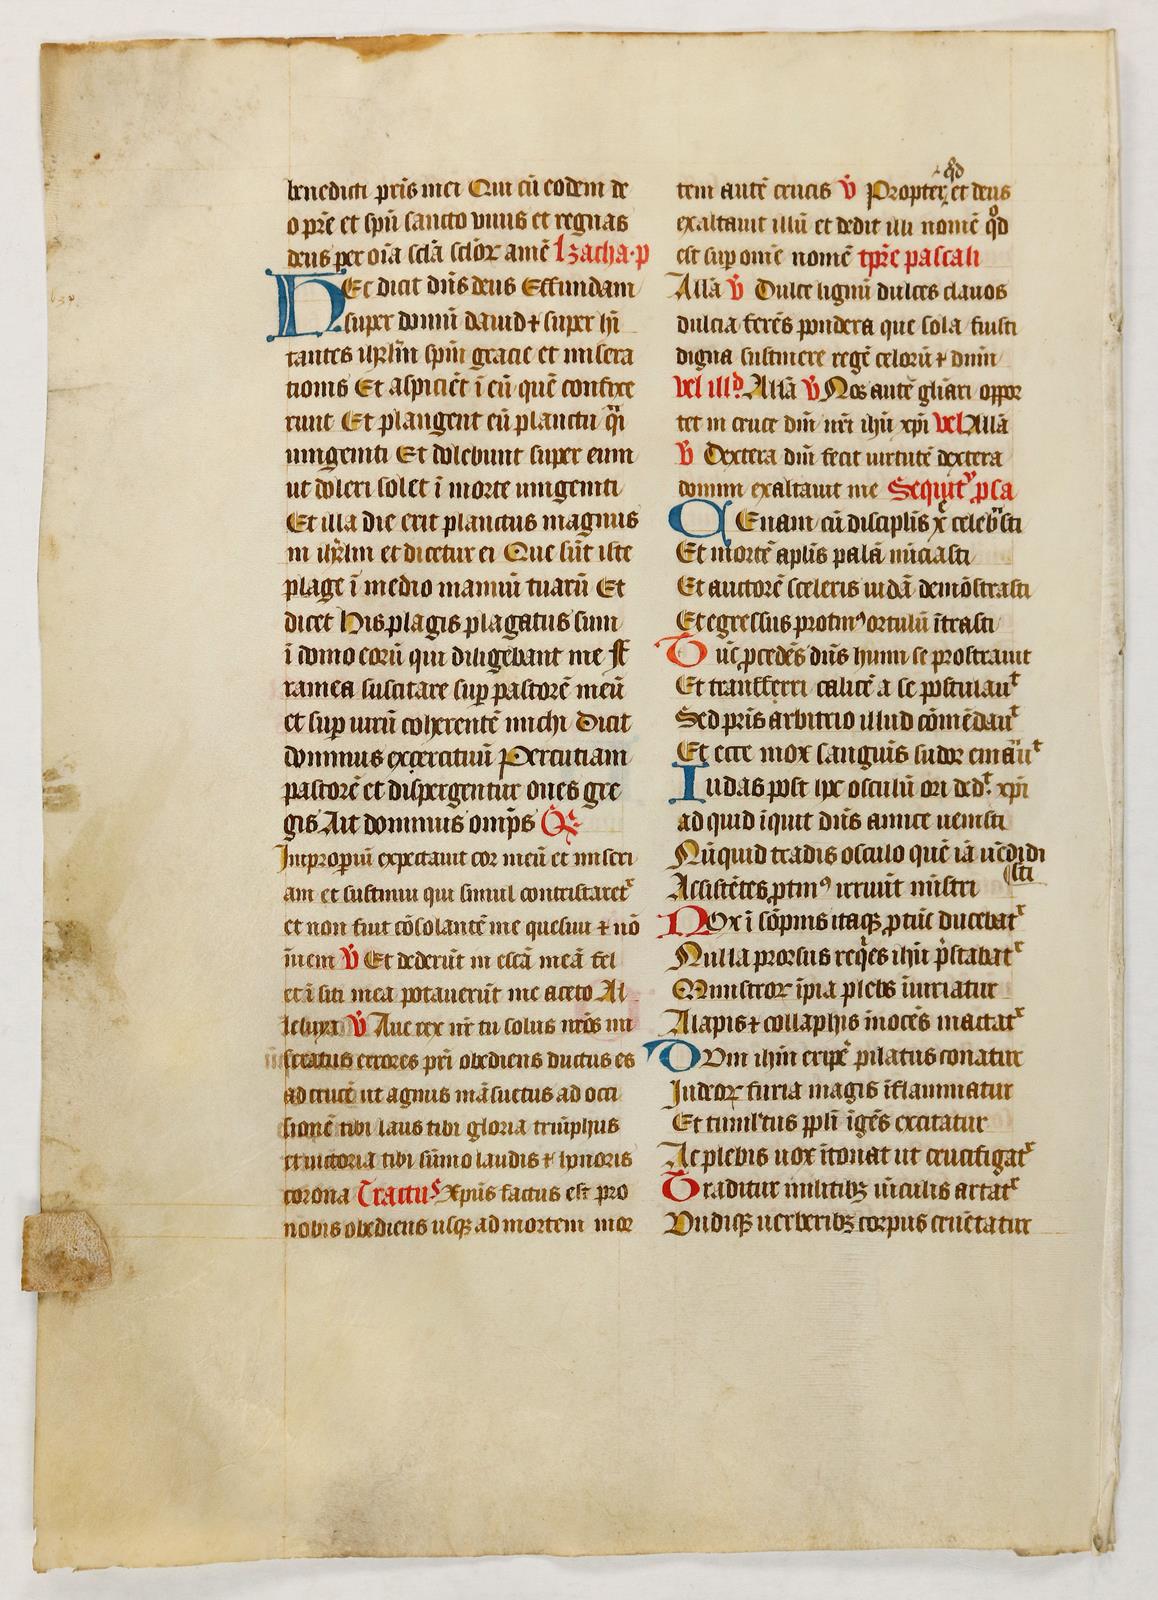 benedicti pris̄ mei Qui cū eodem de
o pr̄e et spū sancto viuis et regnas
deus per oīa sclā sclōꝝ amē lʒacha·p
HEc dicit dn̄s deus Effundam
super domū dauid ⁊ super hī
tantes ihrl̄m spm̄ gracie et misera
tionis Et aspiciēt ī eū quē confixe
runt Et plangent eū planctu qī
unigeniti Et dolebunt super eum
ut doleri solet ī morte unigeniti
Et illa die erit planctus magnus
in ihrl̄m et dicetur ei Que sūt iste
plage ī medio manuū tuarū Et
dicet His plagis plagatus sum
ī domo eorū qui diligebant me ff
ramea suscitare suꝑ pastorē meū
et suꝑ uirū coherentē michi Dicit
dominus exercituū Percutiam
pastorē et dispergentur oues gre
gis Ait dominus omp̄s
Impropiū expectauit cor meū et miseri
am et sustinui qui simul contristaretᷣ
et non fuit cōsolantē me quesiui ⁊ nō
īuem v̄ Et dederūt in escā meā fel
et ī siti mea potauerūt me aceto Al
leluya v̄ Aue rex nr̄ tu solus nrōs mi
seratus errores pr̄i obediens ductus es
ad crucē ut agnus māsuetus ad occi
sionē tibi laus tibi gloria triūphus
et victoria tibi sūmo laudis ⁊ honoris
corona Tractus Xpūs factus est pro
nobis obediens usqꝫ ad mortem mor
qd̄
tem autē crucis v̄ Propter et deus
exaltauit illū et dedit illi nomē qd̄
est suꝑ omē nomē tpr̄e pascali
Allā v̄ Dulce lignū dulces clauos
dulcia ferēs pondera que sola fuisti
digna sustinere regē celorū ⁊ dnm̄
vel illd̄ Allā v̄ Nos autē gl̄iari oppor
tet in cruce dn̄i nr̄i ihū xp̄i vel Allā
v̄ Dextera dn̄i fecit uirtutē dextera
domini exaltauit me Sequitᷣ ꝓsa
CEnam cū disciplīs xp̄e celebᷓsti
Et mortē aplīs palā nūciasti
Et auctorē sceleris iudā demōstrasti
Et egressus protinꝰ ortulū ītrasti
Tūc ꝓcedēs dn̄s humi se prostrauit
Et transferri calicē a se postulauᷣt
Sed pris̄ arbitrio illud cōmēdauᷣt
Et ecce mox sanguīs sudor emāuᷣt
Iudas post hec osculū ori dedᷣt xp̄i
ad quid īquit dn̄s amice uenisti
Nūquid tradis osculo quē iā uēdidi
sti
Assistētes ꝓtinꝰ irruūt mīstri
NOx ī sōpnis itaqꝫ ꝓ tūc ducebatᷣ
Nulla prorsus reqͥes ihū p̄stabatᷣ
Ministroꝝ īpia plebs īuriatur
Alapis ⁊ collaphis īnocēs mactatᷣ
DVm ihm̄ eripe᷑ pilatus conatur
Iudeoꝝ furia magis īflammatur
Et tumltus ppl̄i īgēs excitatur
Ac plebis uox ītonat ut crucifigatᷣ
Traditur militibꝫ uīculis artatᷣ
Vndiqꝫ uerberibꝫ corpus cruētatur